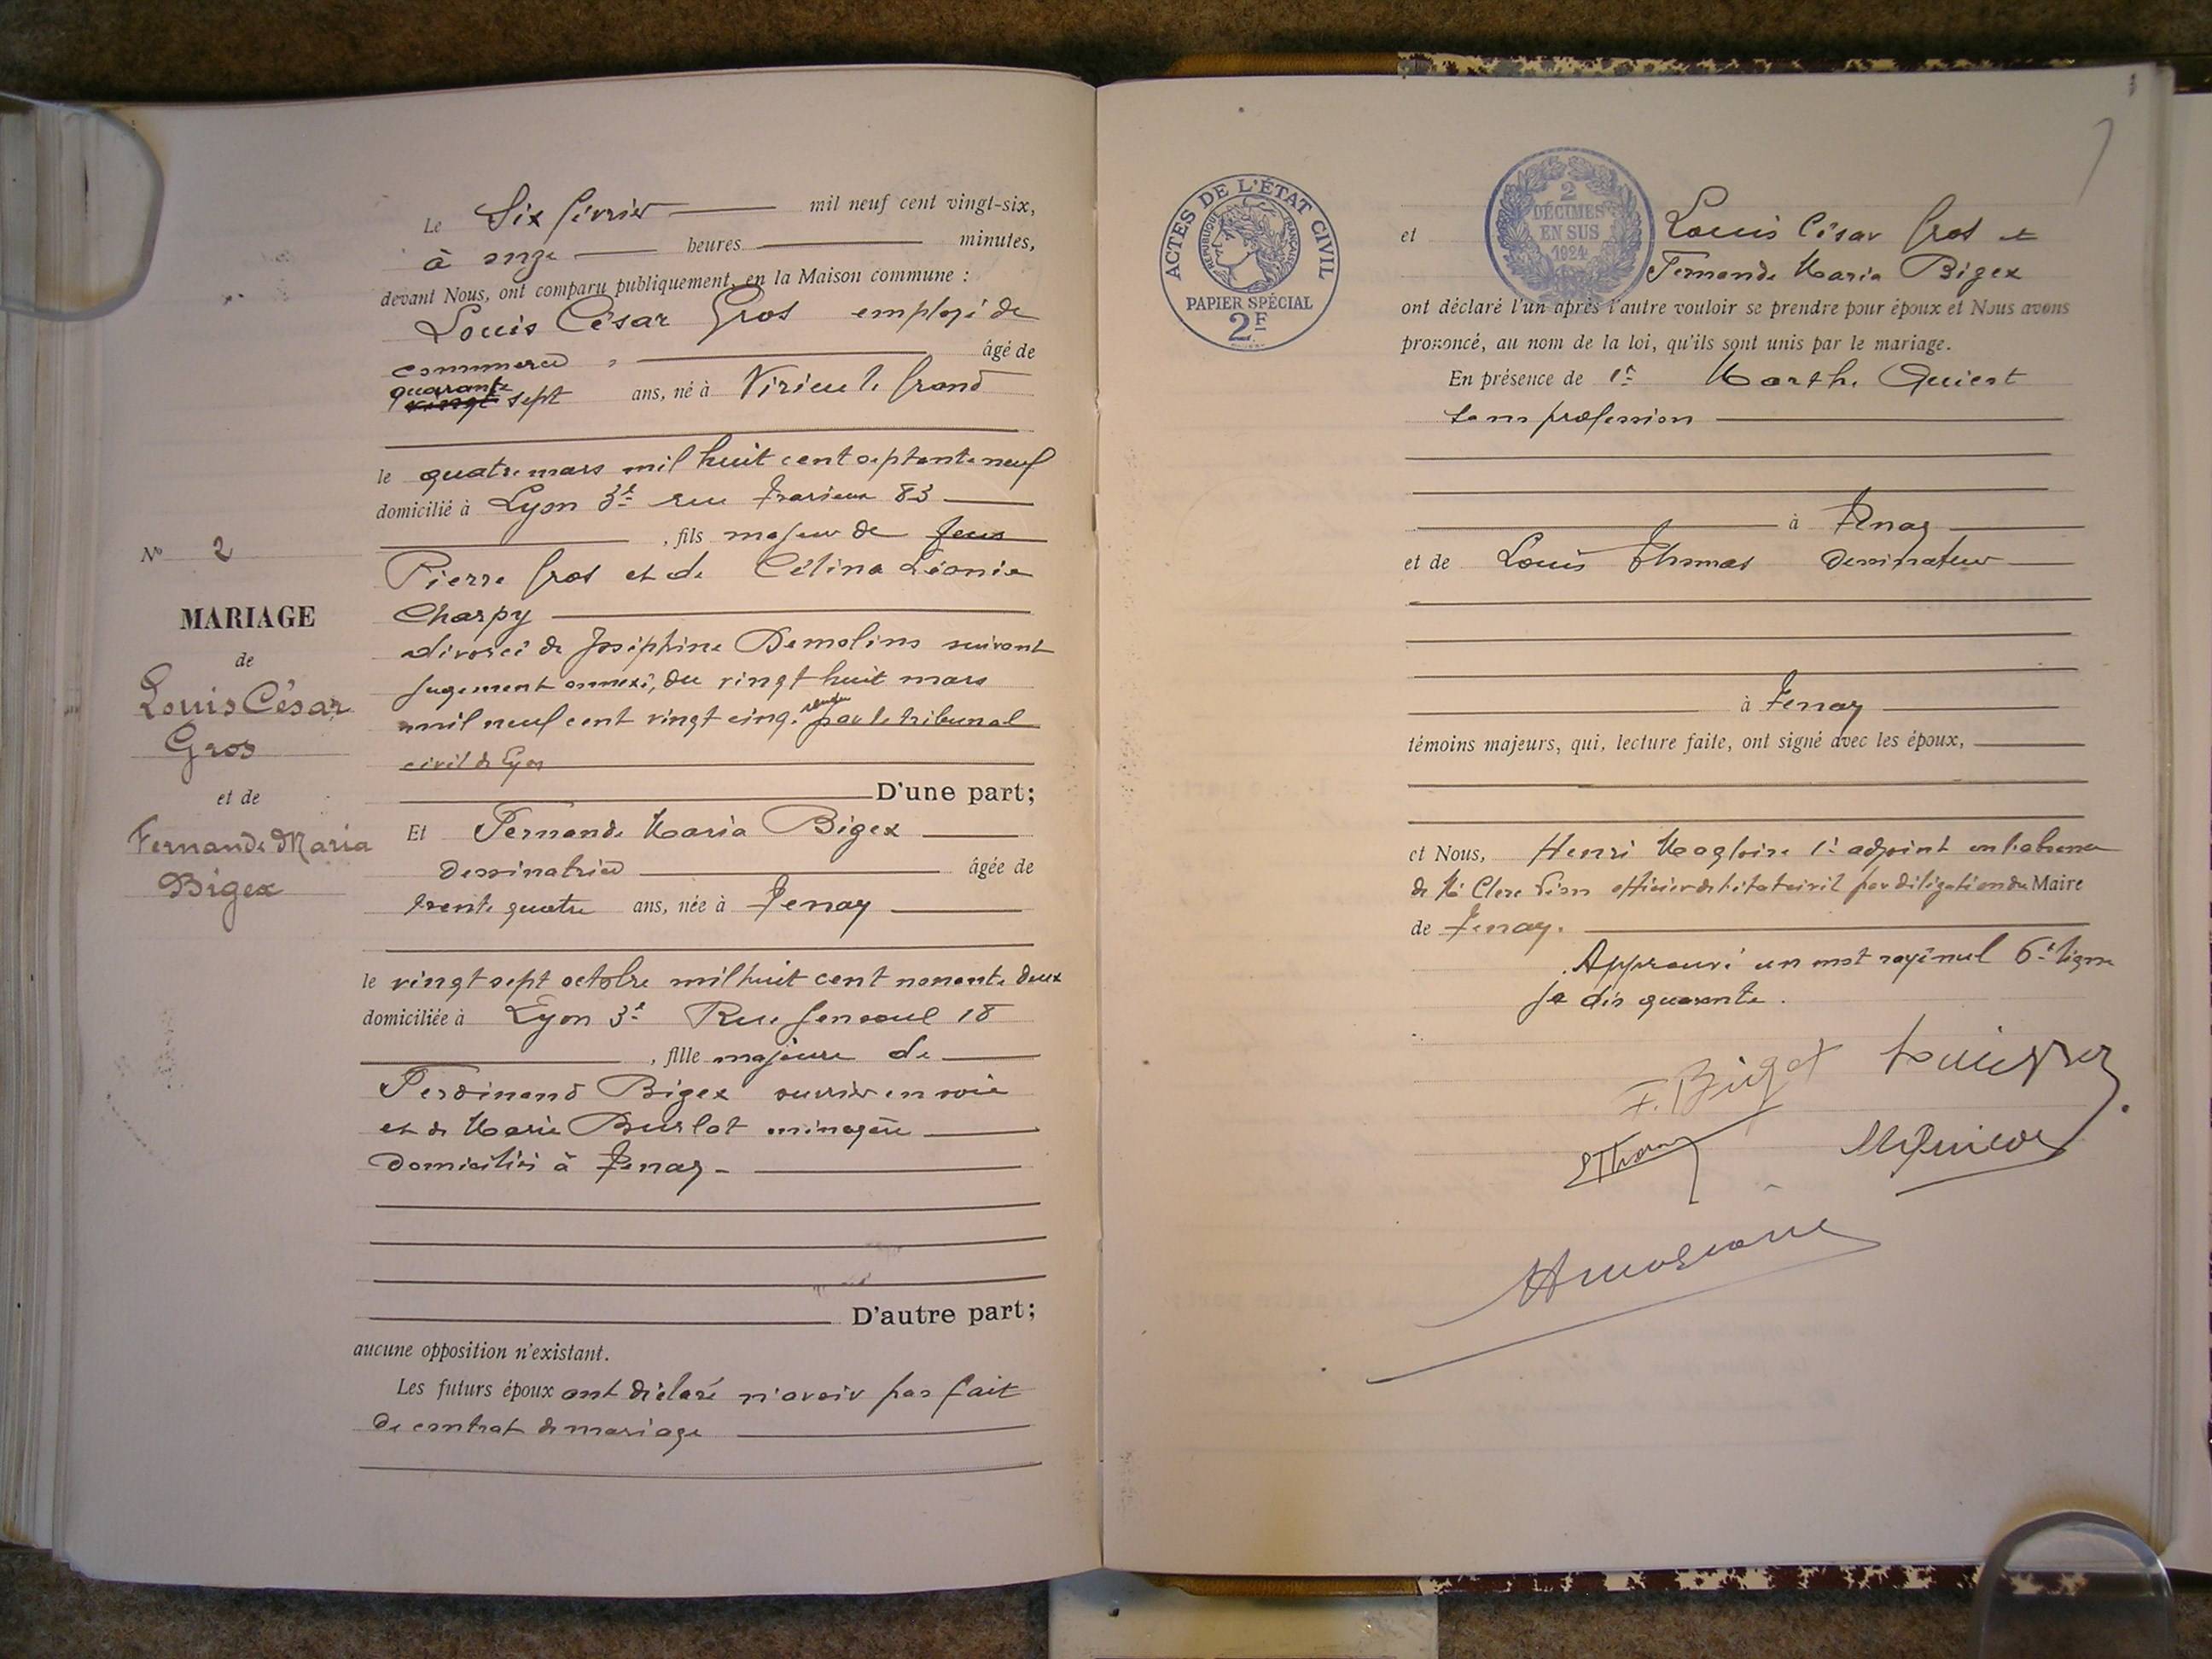 Le Six février mil neuf cent vingt-six,
à onze heures minutes,
devant Nous, ont comparu publiquement, en la Maison commune :
Louis César Gros employé de
commerce, âgé de
quarante
vingt sept ans, né à Virieu le Grand
le quatre mars mil huit cent septante neuf
domicilié à Lyon 3e rue Trarieux 83
, fils majeur de feus
Pierre Gros et de Célina Léonie
Charpy
divorcé de Joséphine Demolins suivant
jugement annexé, du vingt huit mars
mil neuf cent vingt cinq. rendu par le tribunal
civil de Lyon
D'une part;
Et Fernande Maria Bigex
dessinatrice âgée de
trente quatre ans, née à Tenay
le vingt sept octobre mil huit cent nonante deux
domiciliée à Lyon 3e Rue Jensoul 18
, fille majeure de
Ferdinand Bigex ouvrier en soie
et de Marie Burlat ménagère
domiciliés à Tenay.
D'autre part;
aucune opposition n'existant.
Les futurs époux ont déclaré n'avoir pas fait
de contrat de mariage
No 2
MARIAGE
de
Louis César
Gros
et de
Fernande Maria
Bigex
ACTES DE L'ÉTAT CIVIL
RÉPUBLIQUE FRANÇAISE
PAPIER SPÉCIAL
2F
2
DÉCIMES
EN SUS
1924
et Louis César Gros et
Fernande Maria Bigex
ont déclaré l'un après l'autre vouloir se prendre pour époux et Nous avons
prononcé, au nom de la loi, qu'ils sont unis par le mariage.
En présence de 1r Marthe
sans profession
à Tenay
et de Louis Thomas dessinateur
à Tenay
témoins majeurs, qui, lecture faite, ont signé avec les époux,
et Nous, Henri Magloire 1r adjoint en l'absence
de Mr Clerc officier de l'état civil par délégation du Maire
de Tenay.
Approuvé un mot rayé nul 6e ligne
je dis quarante.
F. Bigex